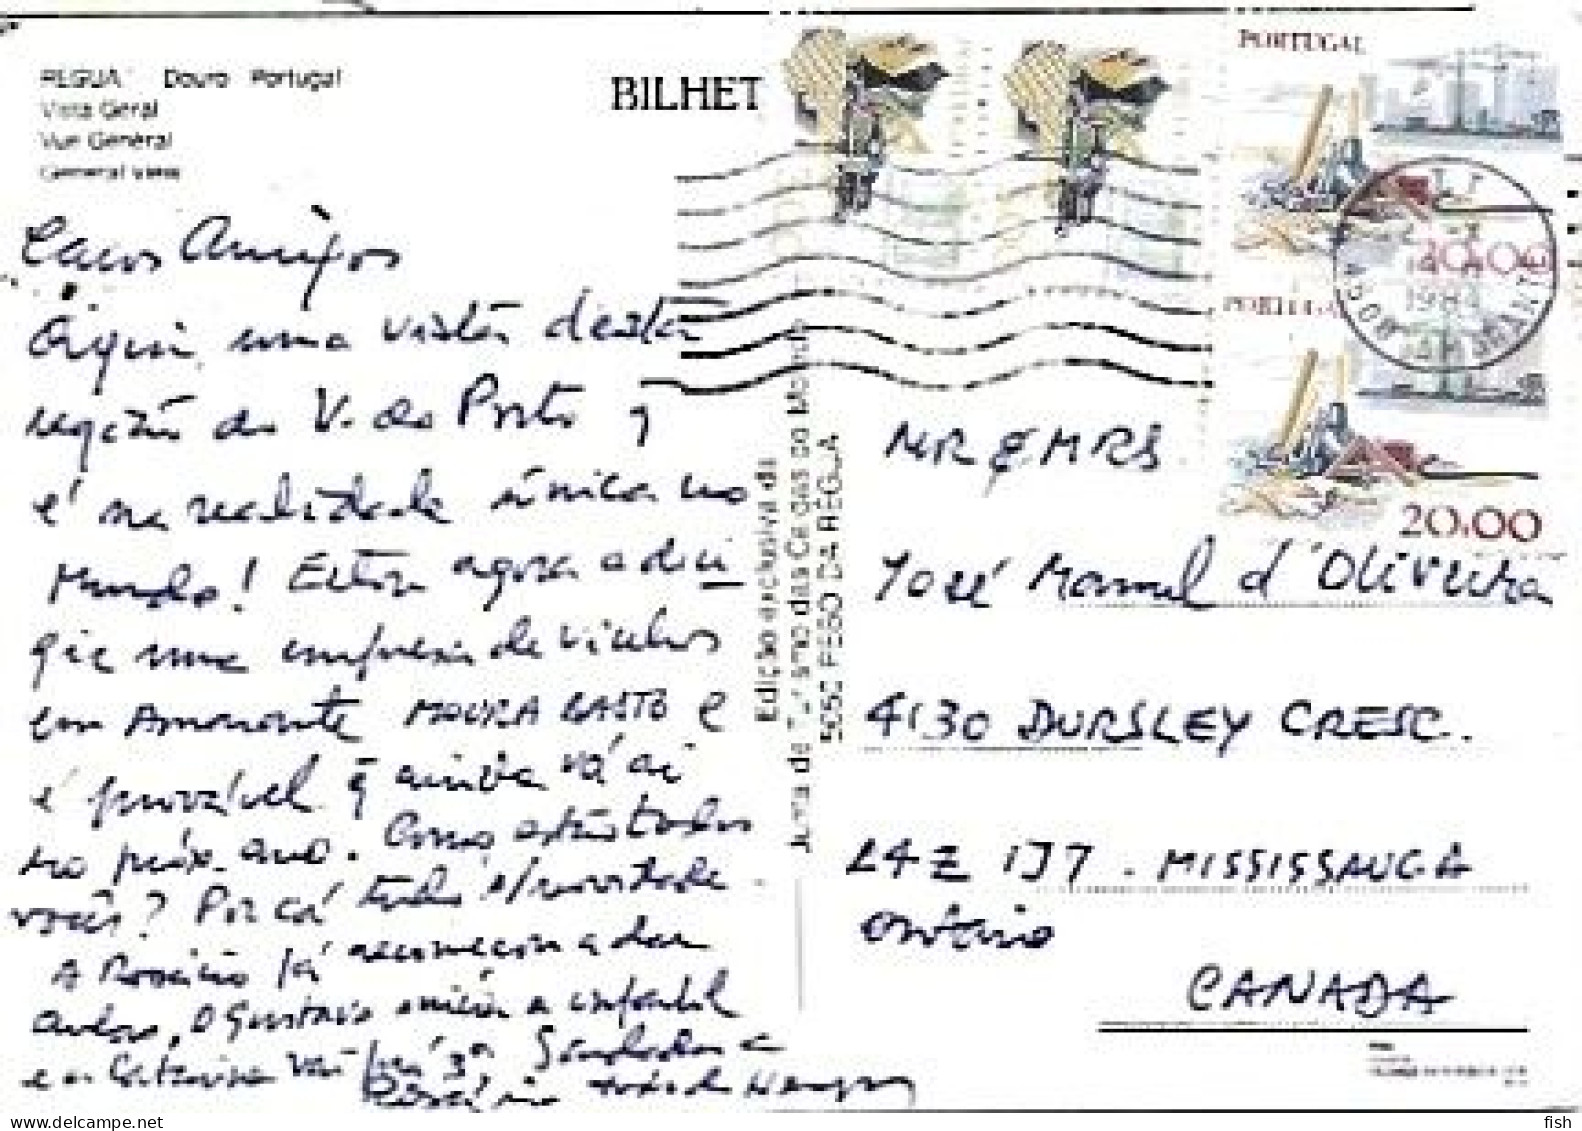 REGUA Douro Portugal
Vista Geral
Vue Général
General View
BILHET
PORTUGAL
20.00
1984
PORTUGAL
20.00
Caros Amigos
Aqui uma vista desta
região do V. do Porto
é na realidade única no
Mundo! Estou agora a diri
gir uma empresa de vinhos
em Amarante MOURA BASTO e
é provável q ainda vá aí
no próx. ano. Como estão todos
vocês? Por cá tudo s/novidade.
A Rosário já recomeçou a dar
aulas, o Gustavo inicia a infantil
e a Catarina vai prá 3ª Saudades
Rosário
Edição exclusiva da
Junta de Turismo das Caldas do Moledo
5050 PESO DA RÉGUA
MR & MRS
José Manuel d'Oliveira
4130 DURSLEY CRESC.
L4Z 1J7 - MISSISSAUGA
Ontario
CANADA
fish
www.delcampe.net